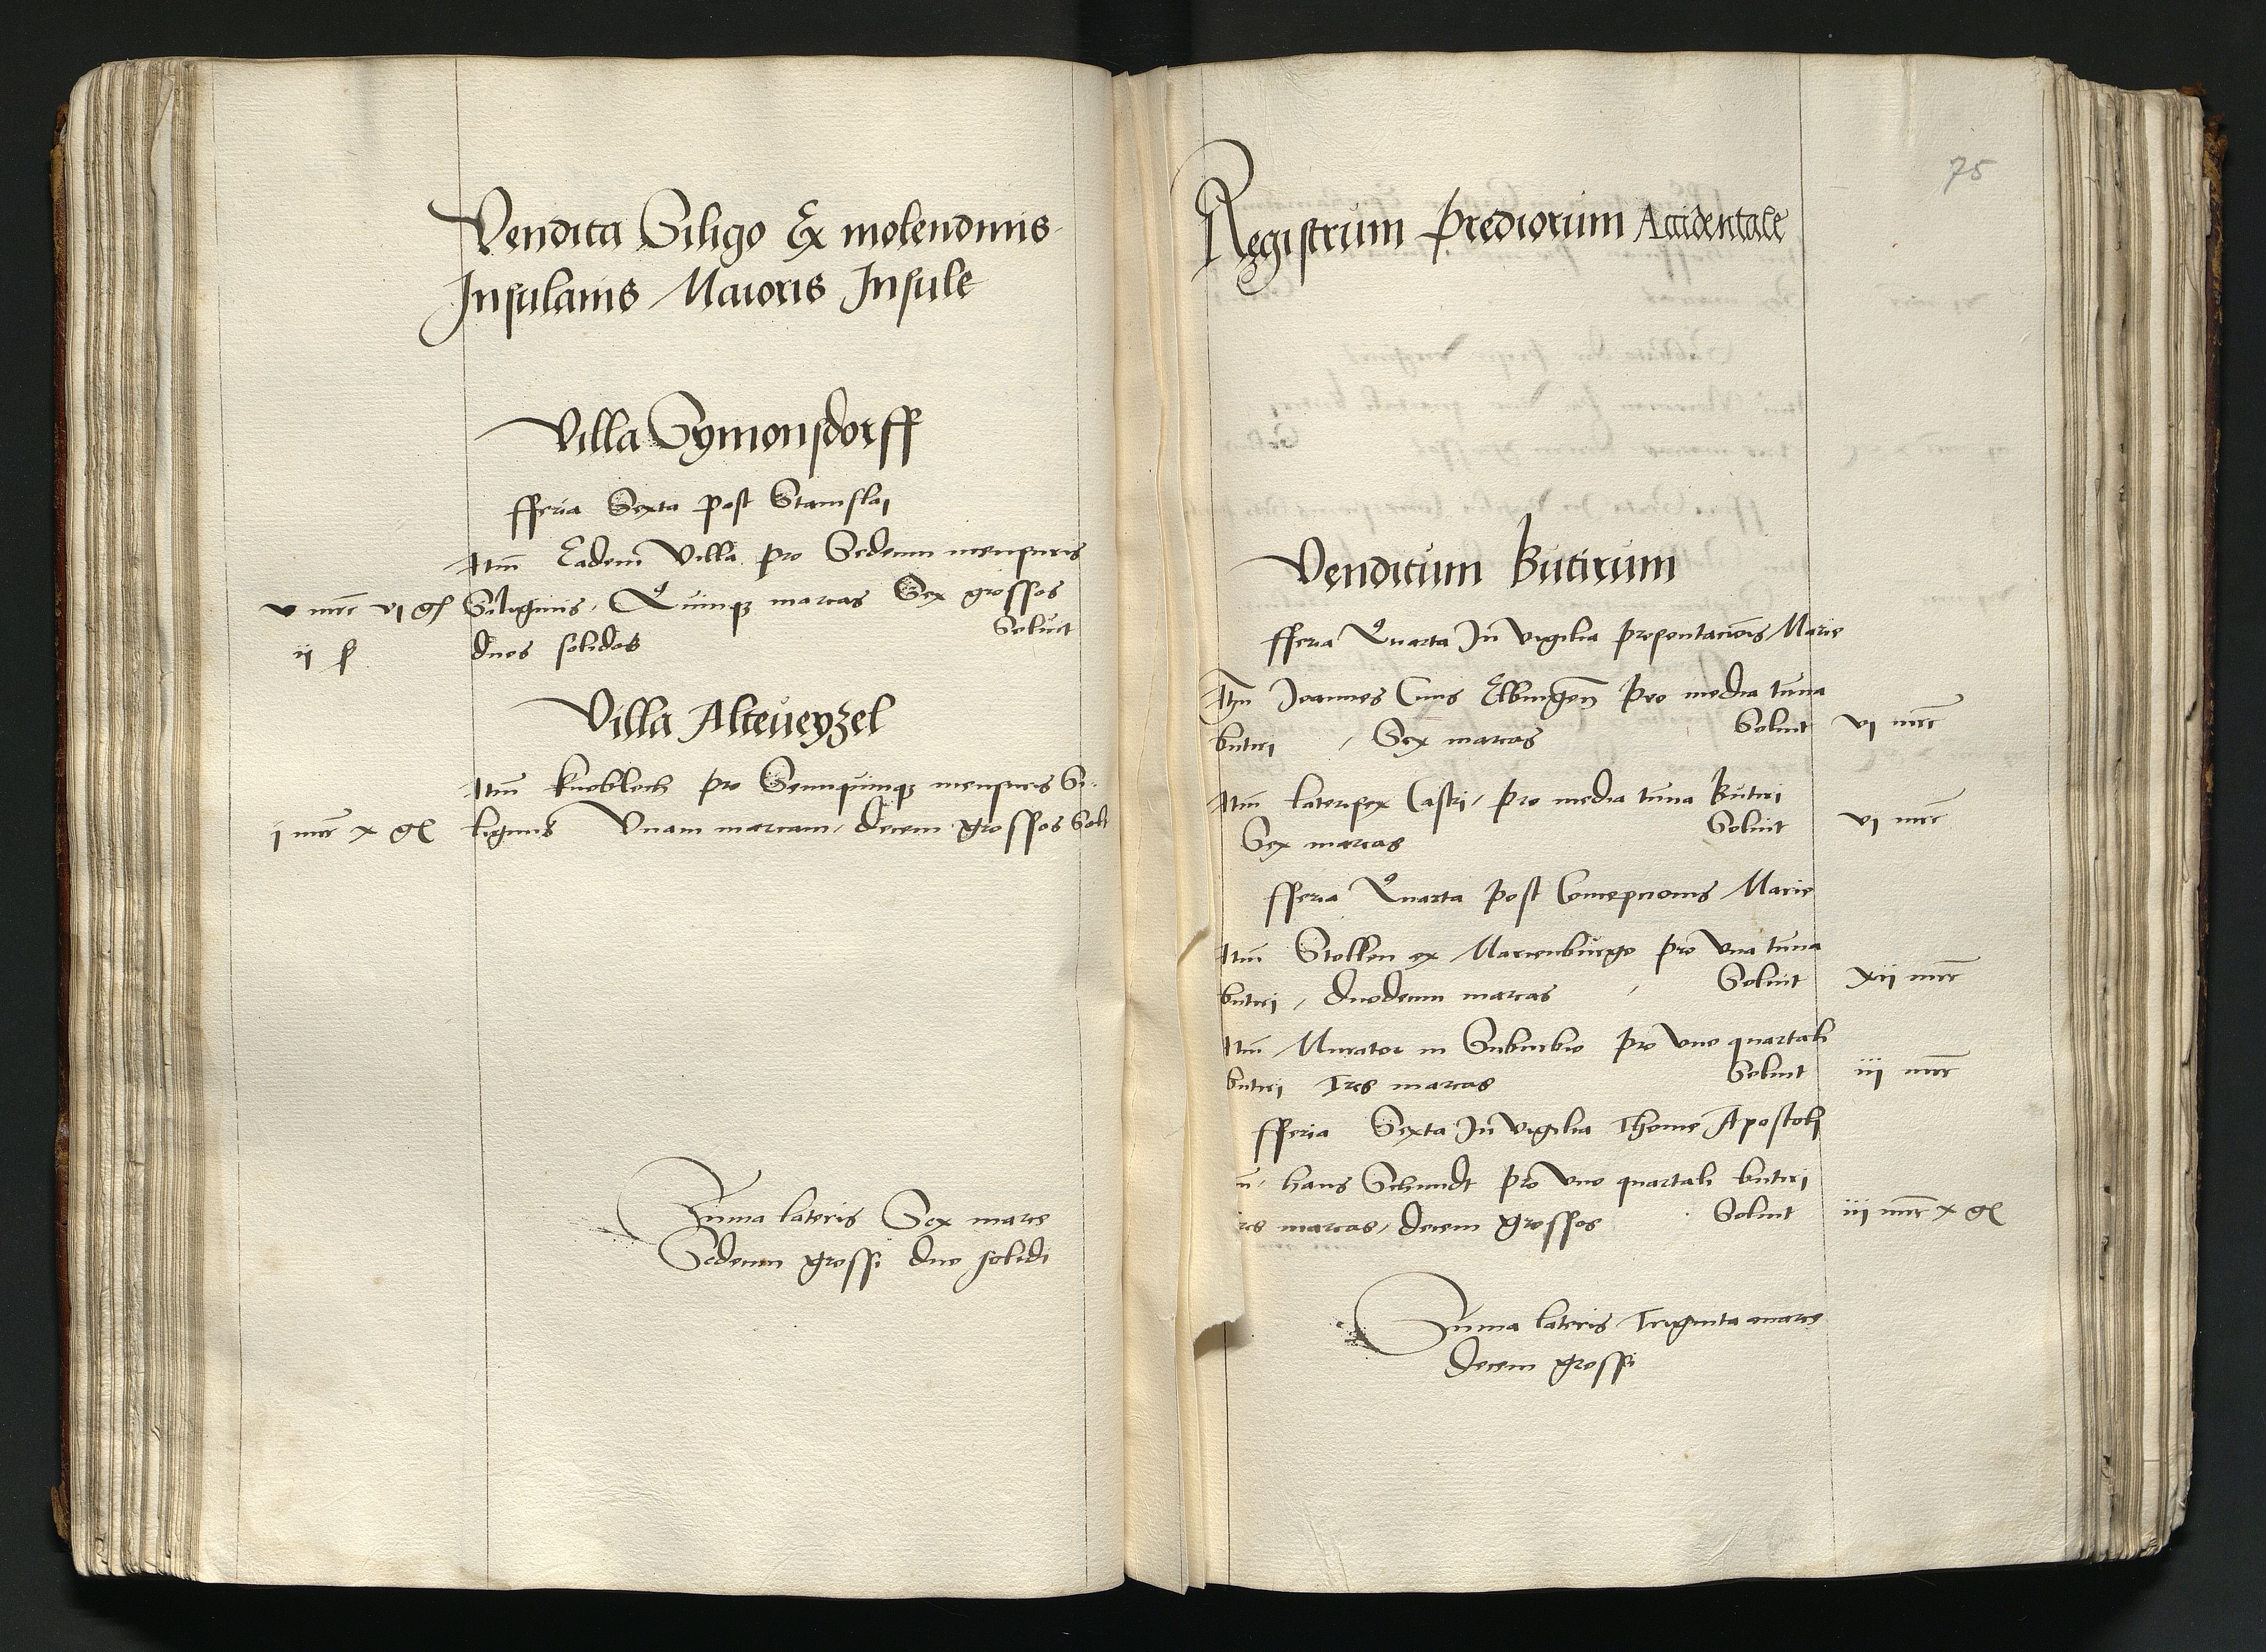 Vendita Siligo Ex molendinis
Insulanis Maioris Insule
Villa Symonsdorff
fferia Sexta post Stanislai
Itm Eadem Villa pro Sedecim mensuris
v mrc vi gr Siliginis, Quinq marcas Sex grossos
Soluit
ii ſ duos solidos
Villa Alteveyzel
Itm Knobloch pro Semiquinq mensuris Si-
i mrc x gr liginis Unam marcam, decem grossos Solt
Summa lateris Sex marce
Sedecim grossi duo solidi
75
Registrum Prediorum Accidentale
Venditum Butirum
fferia Quarta In vigilia presentacionis Marie
Itm Joannes Civis Elbingen pro media tuna
butiri, Sex marcas Soluit vi mrc
Itm laterifex Castri, pro media tuna Butiri
Sex marcas Soluit vi mrc
fferia Quarta post Concepcionis Marie
Itm Stollen ex Marienburgo pro Una tuna
butiri, duodecim marcas Soluit xii mrc
Itm Murator in Suburbio pro Uno quartali
butiri Tres marcas Soluit iii mrc
fferia Sexta In vigilia Thome Apostoli
m, hans Schmidt pro Uno quartali butiri
res marcas, decem grossos Soluit iii mrc x gr
Summa lateris Triginta marce
decem grossi